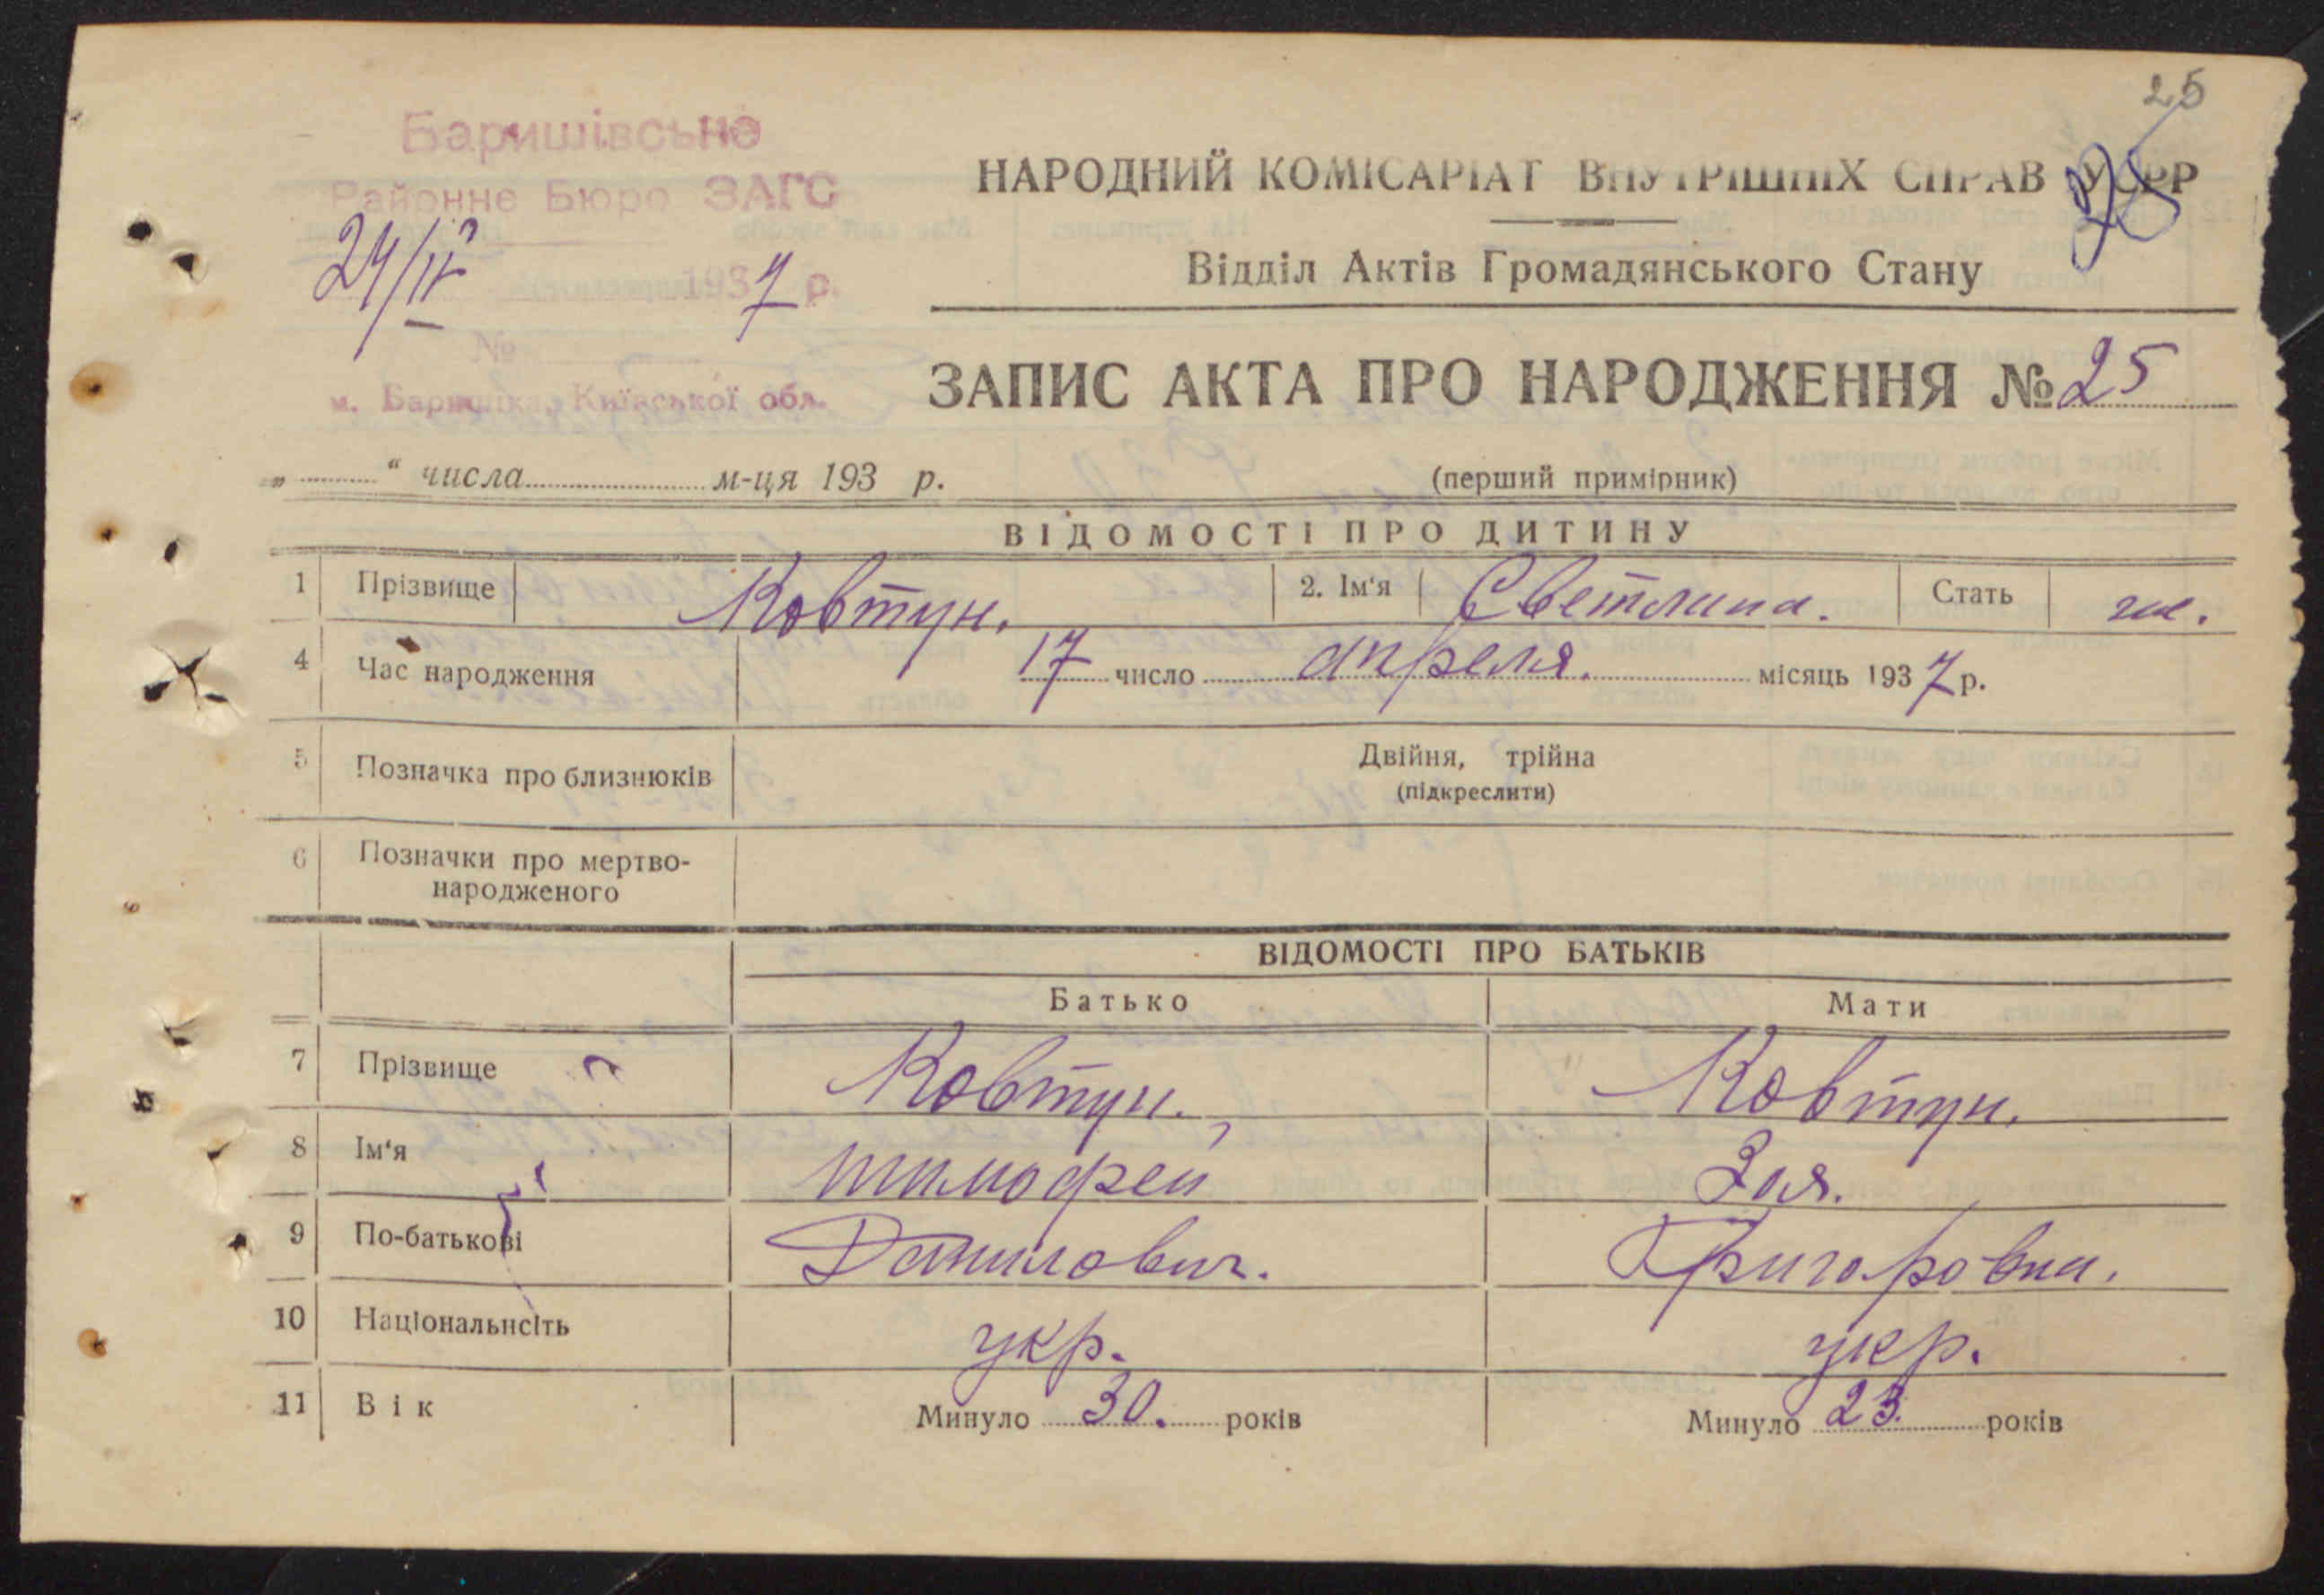 25
Баришівське
Районне Бюро ЗАГС
24/IV 1937 р.
№
м. Баришівка, Київської обл.
НАРОДНИЙ КОМІСАРІАТ ВНУТРІШНІХ СПРАВ УСРР
Відділ Актів Громадянського Стану
ЗАПИС АКТА ПРО НАРОДЖЕННЯ № 25
„ “ числа м-ця 193 р.
(перший примірник)
ВІДОМОСТІ ПРО ДИТИНУ
1 Прізвище Ковтун. 2. Ім‘я Светлана. Стать ж.
4 Час народження 17 число апреля. місяць 1937 р.
5 Позначка про близнюків Двійня, трійна
(підкреслити)
6 Позначки про мертво-
народженого
ВІДОМОСТІ ПРО БАТЬКІВ
Батько Мати
7 Прізвище Ковтун. Ковтун.
8 Ім‘я Тимофей Зоя.
9 По-батькові Данилович. Григоровна.
10 Національнсіть укр. укр.
11 Вік Минуло 30. років Минуло 23. років